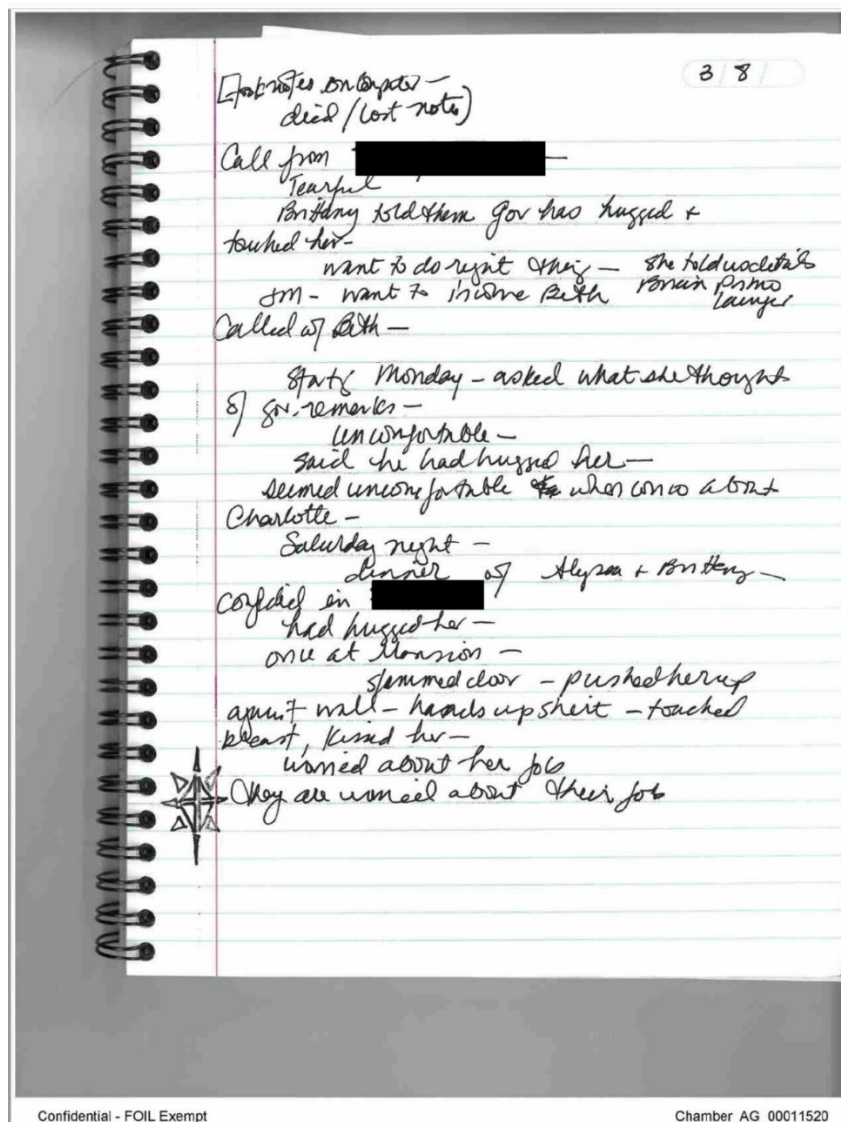 3/8/
[Took notes on computer –
died / lost notes)
Call from
Tearful
Brittany told them Gov has hugged +
touched her –
want to do right thing – she told us details
Brian Premo
Lawyer
JM – want to involve Beth
Called w/ Beth –
Started Monday – asked what she thought
of gov. remarks –
uncomfortable –
said he had hugged her –
seemed uncomfortable when convo about
Charlotte –
Saturday night –
dinner w/ Alyssa + Brittany –
confided in
had hugged her –
once at Mansion –
slammed door – pushed her up
against wall – hands up shirt – touched
breast, kissed her –
worried about her job
They are worried about their job
Confidential - FOIL Exempt
Chamber_AG_00011520